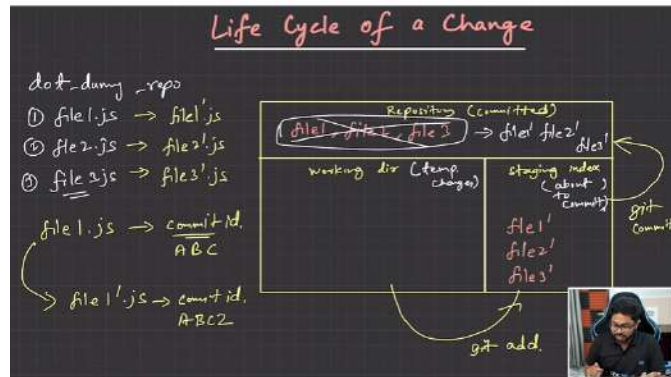 Life Cycle of a Change
dot_dumy_repo
① file1.js → file1'.js
② file2.js → file2'.js
③ file3.js → file3'.js
file1.js → commit id.
ABC
file1'.js → commit id.
ABCZ
Repository (committed)
file1, file2, file3 → file1' file2'
file3'
working dir (temp.
changes)
staging index
(about
to
commit)
file1'
file2'
file3'
git
commit
git add.